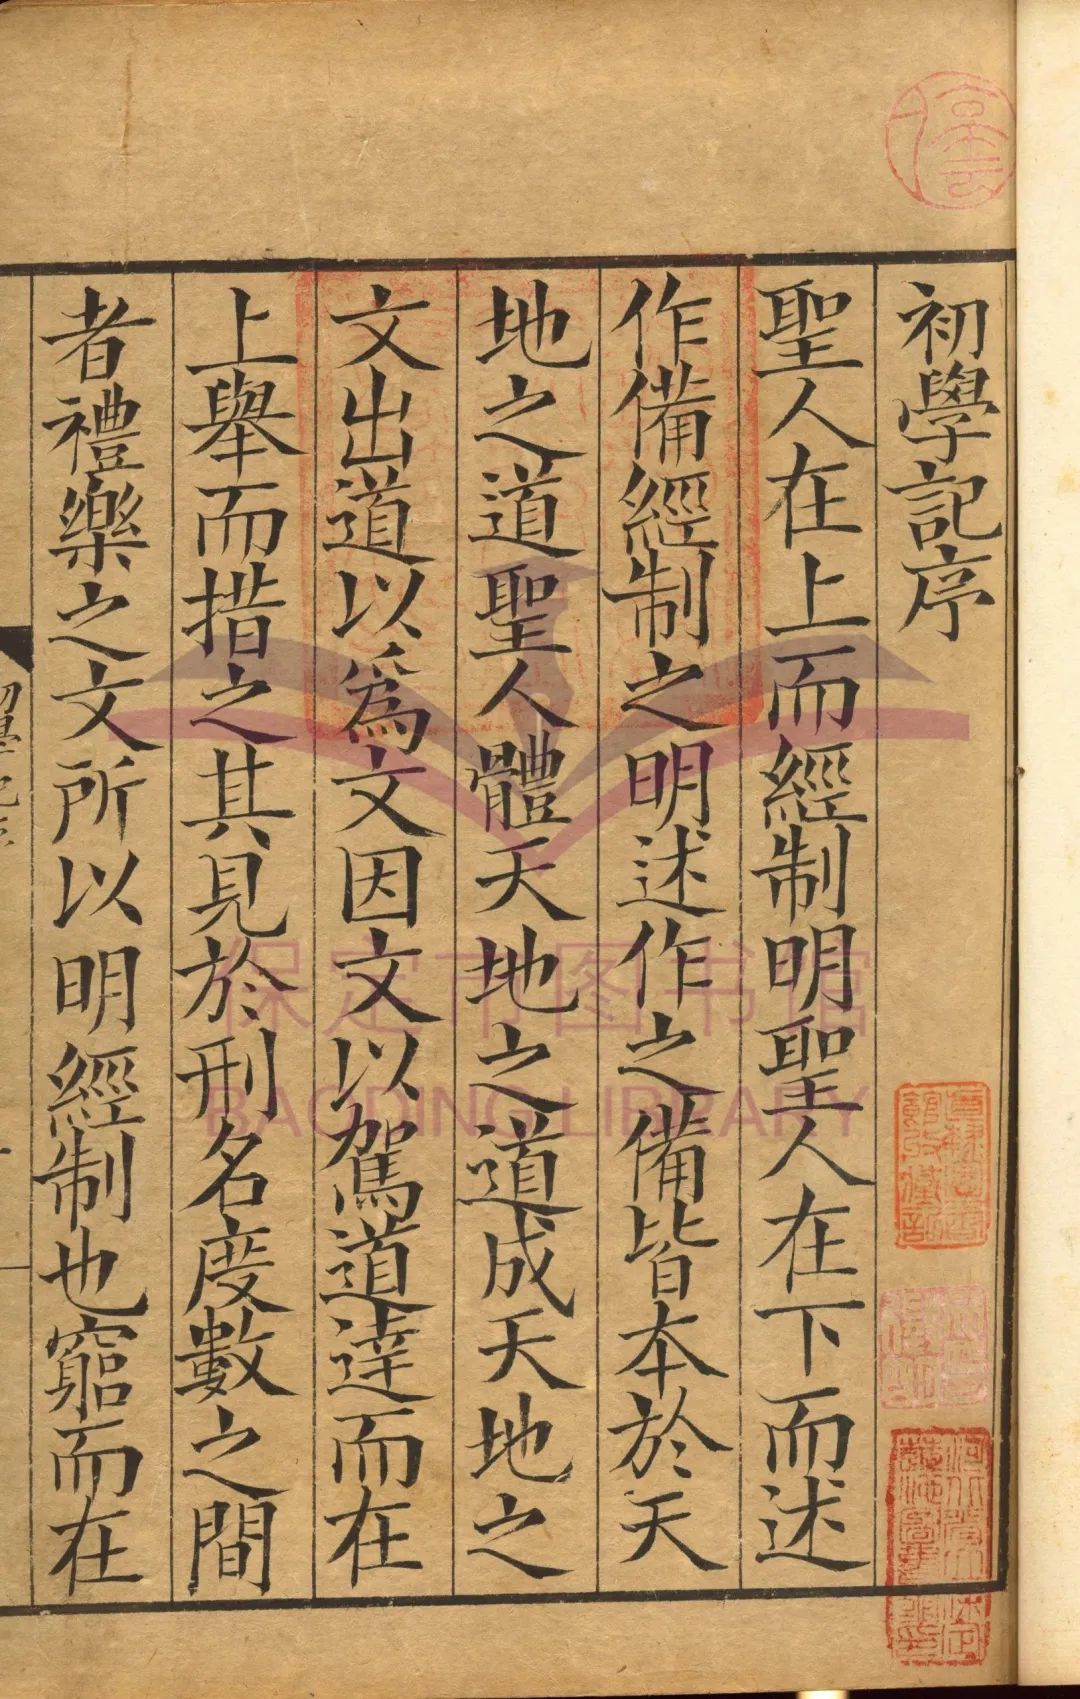 初學記序
聖人在上而經制明聖人在下而述
作備經制之明述作之備皆本於天
地之道聖人體天地之道成天地之
文出道以爲文因文以駕道達而在
上舉而措之其見於刑名度數之間
者禮樂之文所以明經制也窮而在
初學記序
保定市图书馆
BAODING LIBRARY